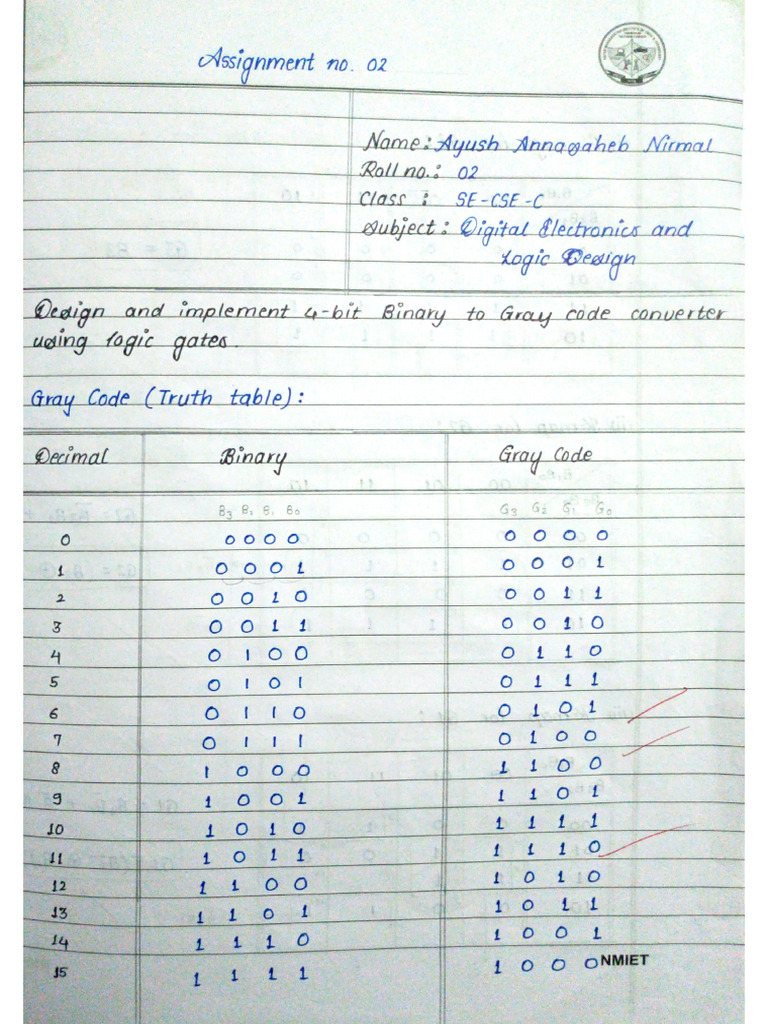 Assignment no. 02
Name: Ayush Annasaheb Nirmal
Roll no.: 02
Class: SE-CSE-C
Subject: Digital Electronics and
Logic Design
Design and implement 4-bit Binary to Gray code converter
using logic gates.
Gray Code (Truth table):
Decimal Binary Gray Code
B3 B2 B1 B0 G3 G2 G1 G0
0 0 0 0 0 0 0 0 0
1 0 0 0 1 0 0 0 1
2 0 0 1 0 0 0 1 1
3 0 0 1 1 0 0 1 0
4 0 1 0 0 0 1 1 0
5 0 1 0 1 0 1 1 1
6 0 1 1 0 0 1 0 1
7 0 1 1 1 0 1 0 0
8 1 0 0 0 1 1 0 0
9 1 0 0 1 1 1 0 1
10 1 0 1 0 1 1 1 1
11 1 0 1 1 1 1 1 0
12 1 1 0 0 1 0 1 0
13 1 1 0 1 1 0 1 1
14 1 1 1 0 1 0 0 1
15 1 1 1 1 1 0 0 0
NMIET